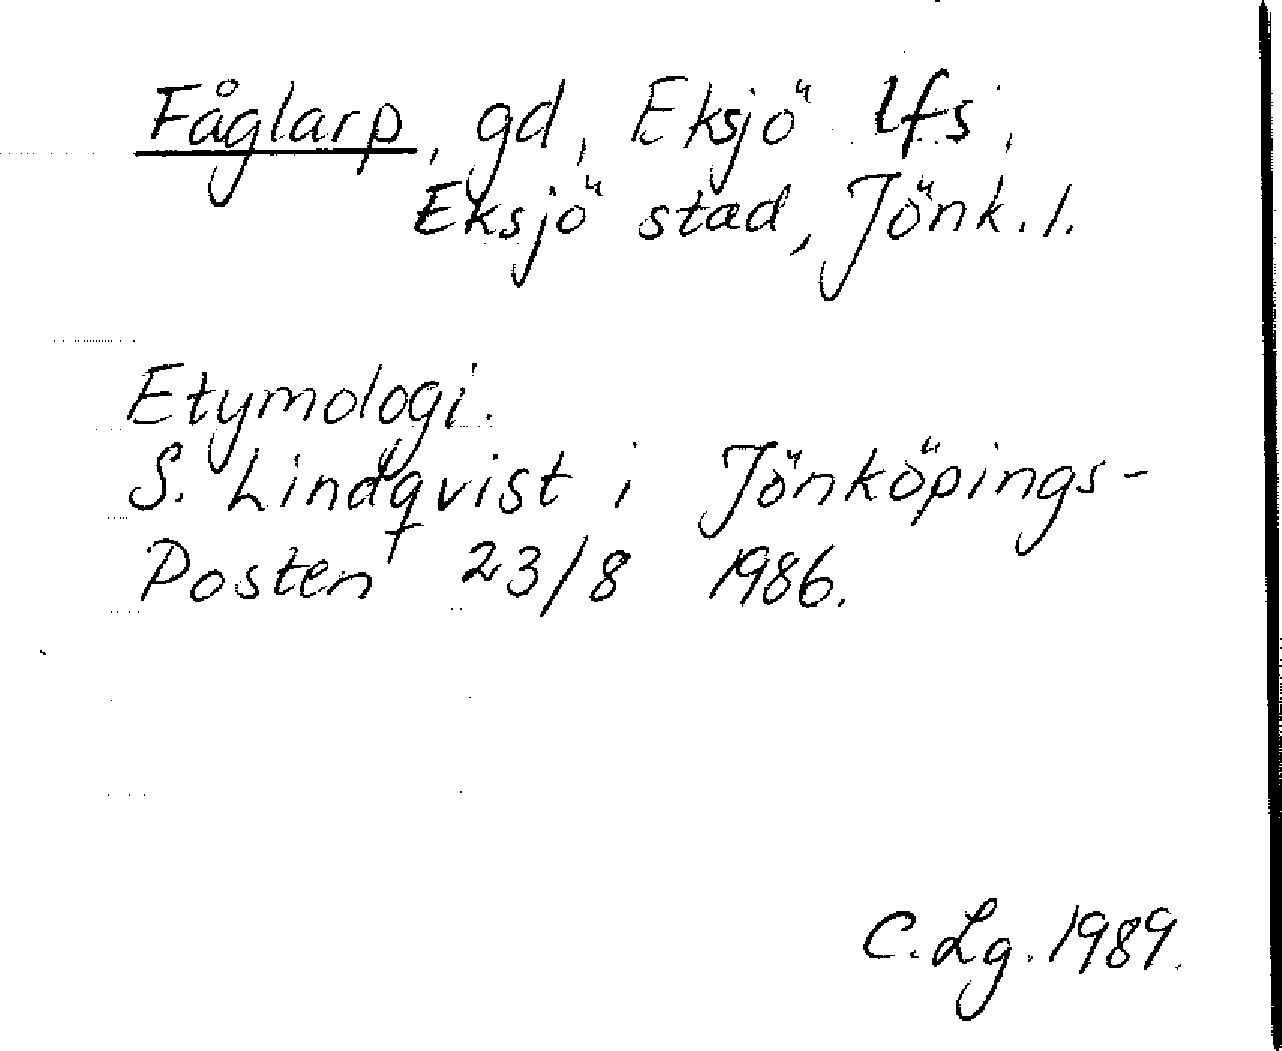 Fåglarp, gd, Eksjö lfs,
Eksjö stad, Jönk. l.
Etymologi.
S. Lindqvist i Jönköpings-
Posten 23/8 1986.
C. Lg. 1989.